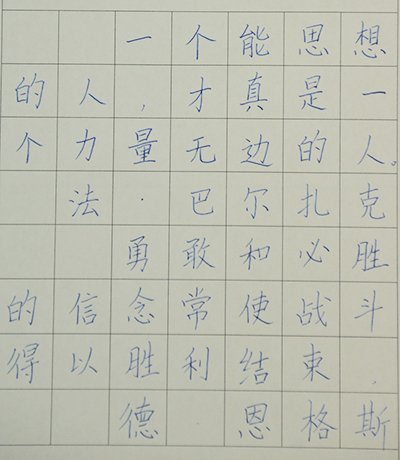 一个能思想
的人，才真是一
个力量无边的人。
法·巴尔扎克
勇敢和必胜
的信念常使战斗
得以胜利结束.
德 恩格斯